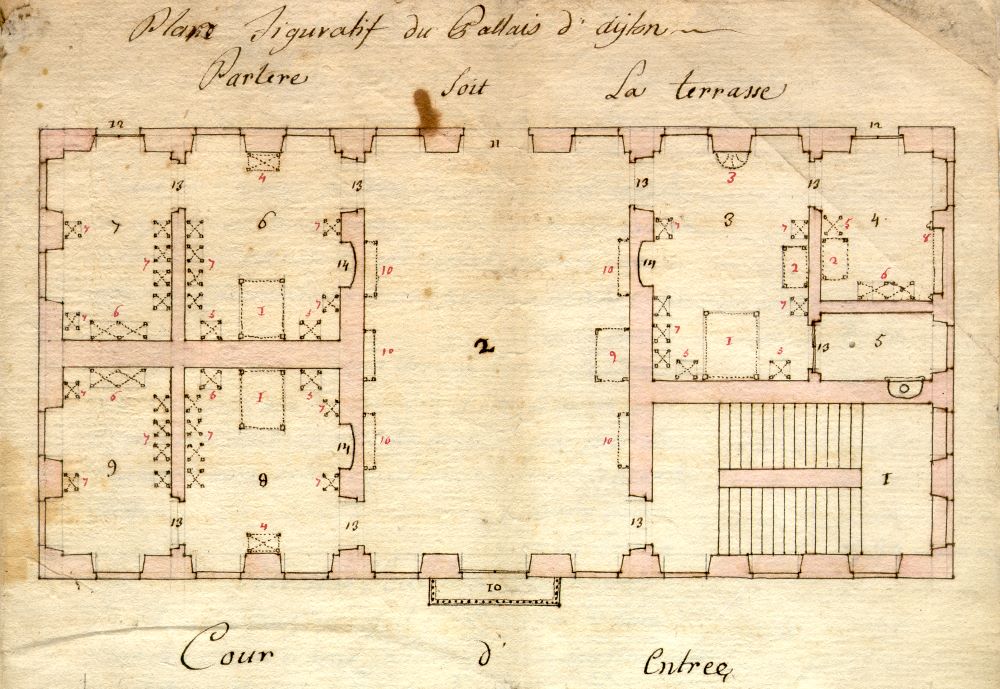 Plane figuratif du Pallais d'ayson
Partere soit La terrasse
12 11 12
13 4 13 13 3 13
7 7 7 7 6 7 7 3 7 4 5 8
7 7 14 10 10 14 2 2
7 6
7 6 5 1 3 7 7
10 2 9 7 1 13 5
5 5
6 6 1 5
7 7 7 7 10 10
9 7 14 1
7 8 7
13 4 13 13
10
Cour d' Entree